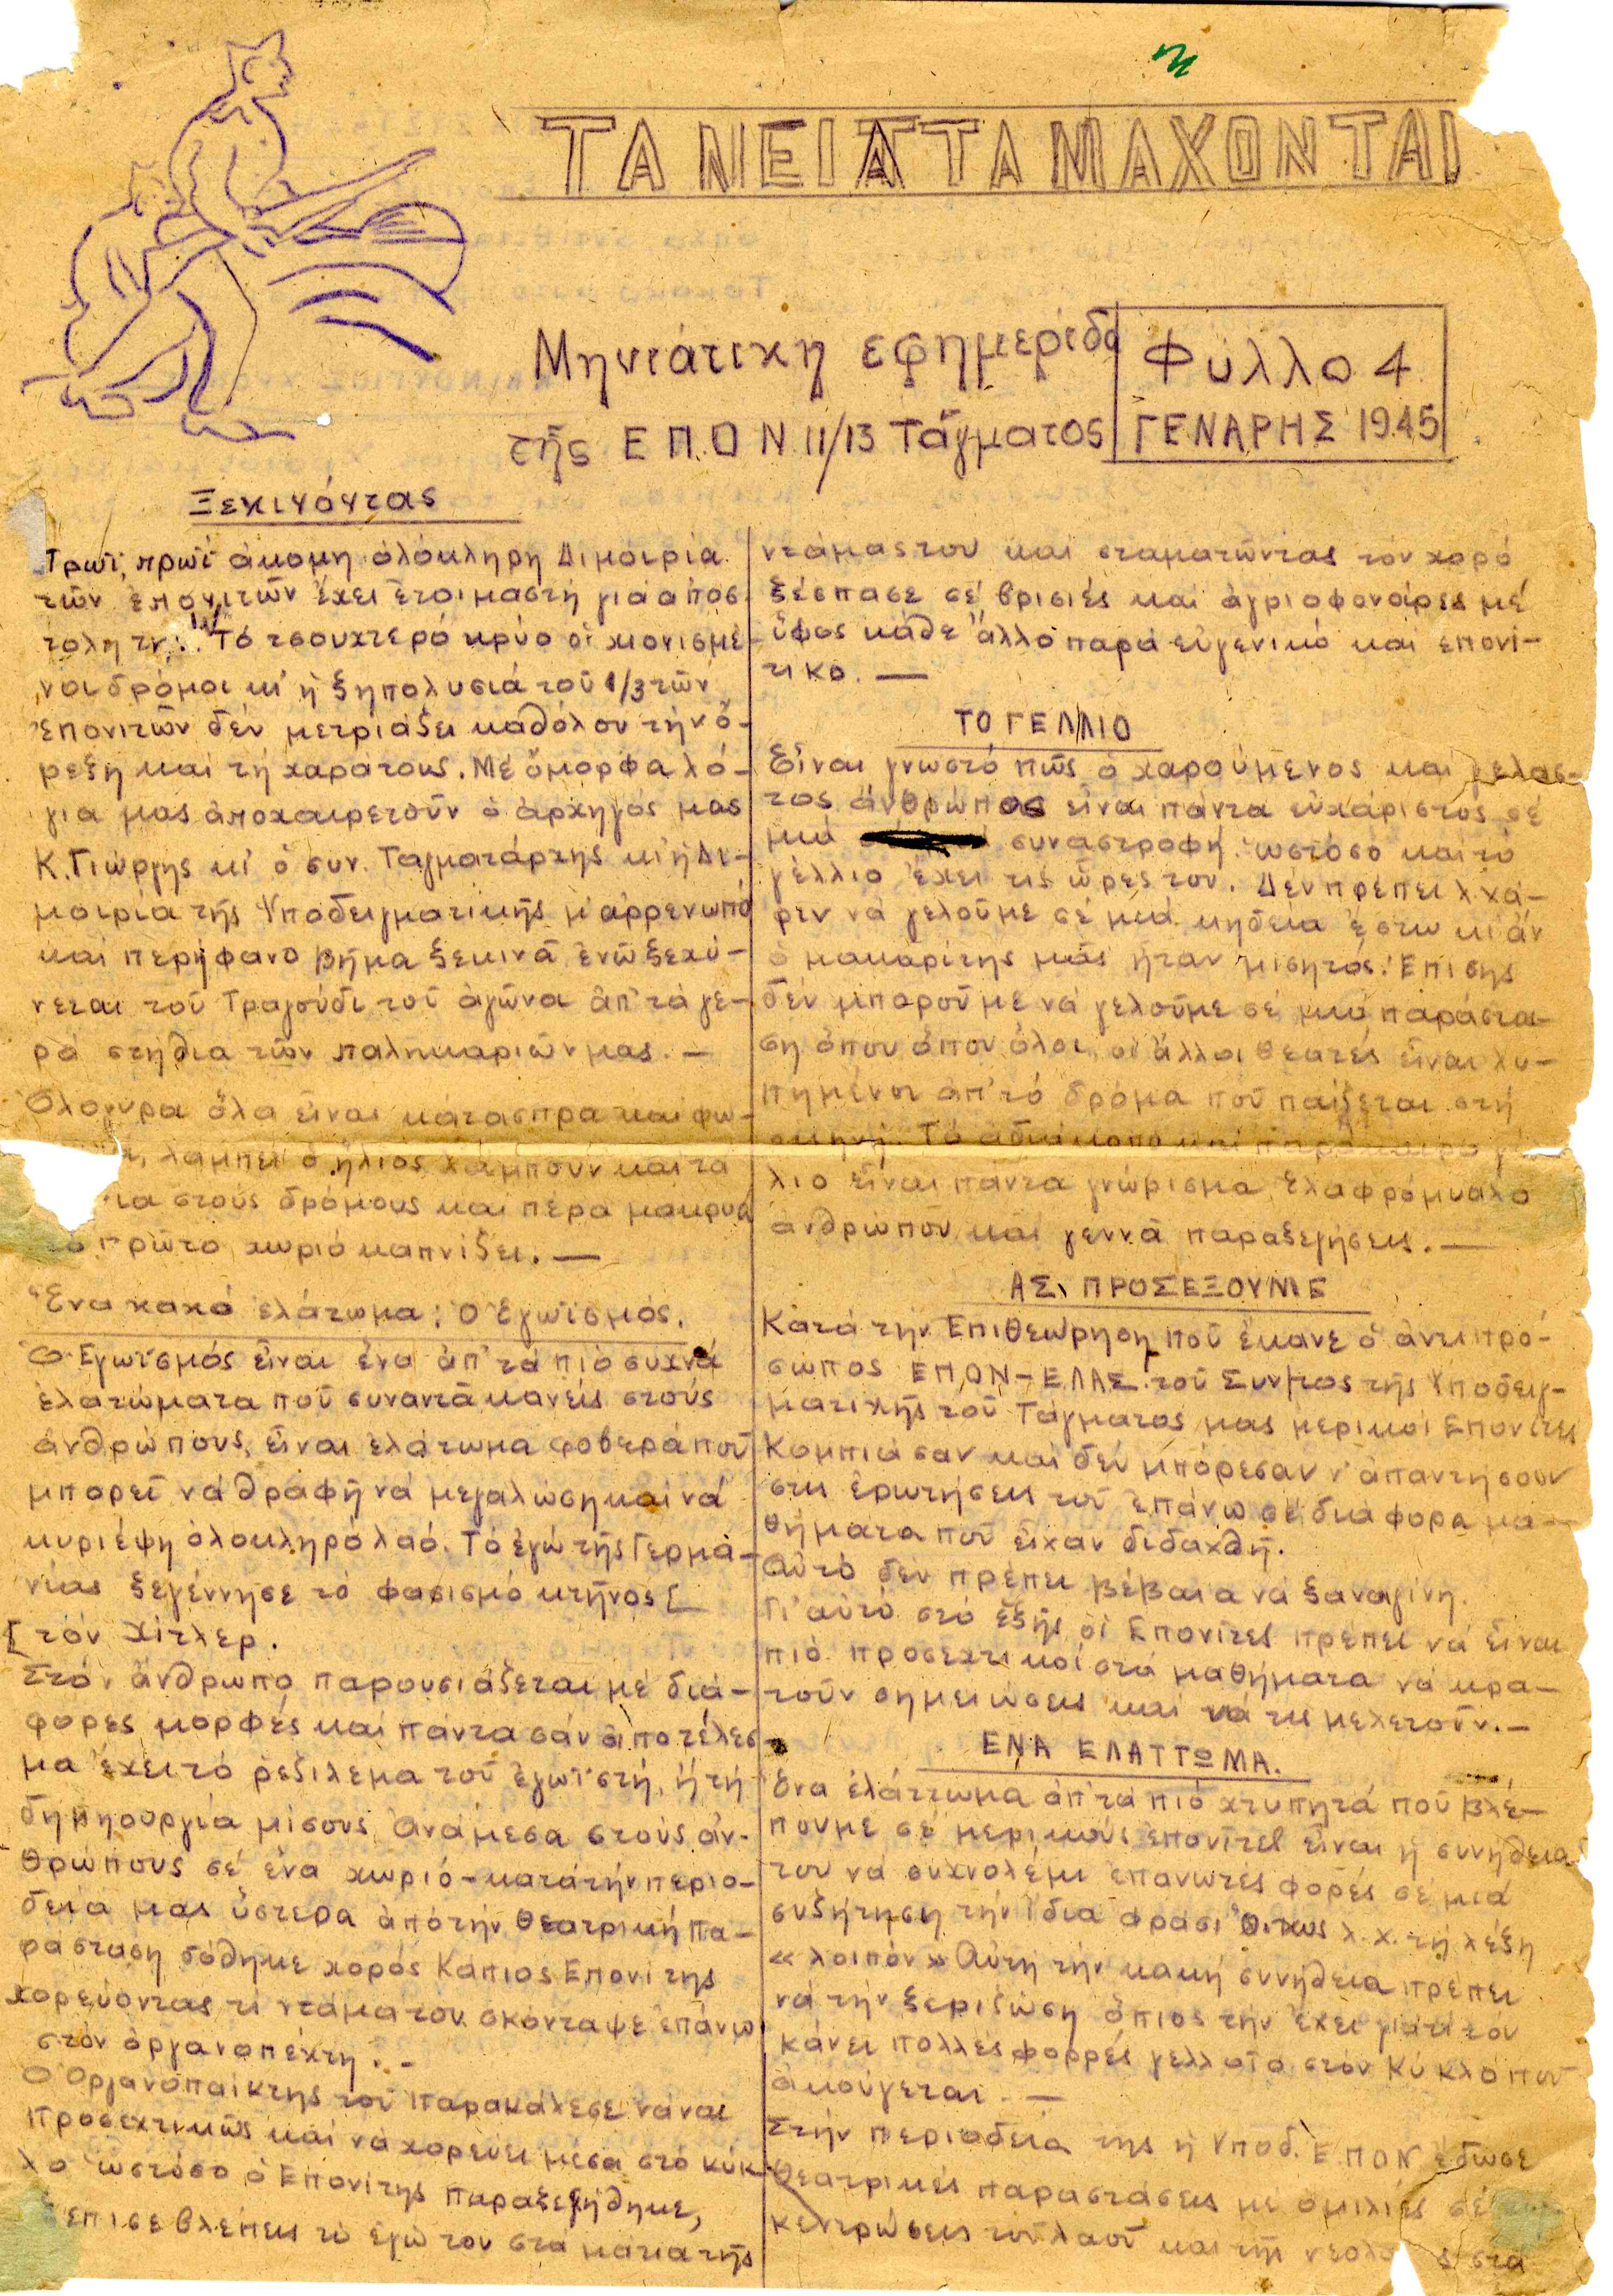 ΤΑ ΝΕΙΑΤΑ ΜΑΧΟΝΤΑΙ
Μηνιάτικη εφημερίδα
τῆς Ε.Π.Ο.Ν. 11/13 Τάγματος
Φύλλο 4
ΓΕΝΑΡΗΣ 1945
Ξεκινόντας
Πρωΐ, πρωΐ ἀκομη ὁλόκληρη Διμοιρία
τῶν ἐπονιτῶν ἔχει ἑτοιμαστῆ γιά ἀποσ-
τολη της. Τό τσουχτερό κρύο οἱ χιονισμέ-
νοι δρόμοι κι' ἡ ξηπολυσιά τοῦ 1/3 τῶν
ἐπονιτῶν δέν μετριάζει καθόλου τήν ὄ-
ρεξη και τή χαρά τους. Μέ ὄμορφα λό-
για μας ἀποχαιρετοῦν ὁ ἀρχηγός μας
Κ. Γιώργης κι' ὁ συν. Ταγματάρχης κι' ἡ Δι-
μοιρία τῆς Υποδειγματικῆς μ' ἀρρενωπό
και περήφανο βῆμα ξεκινᾶ ἐνῶ ξεχύ-
νεται τοῦ Τραγούδι τοῦ ἀγῶνα ἀπ' τά γε-
ρά στήθια τῶν παληκαριῶν μας. —
Ολογυρα ὅλα εἶναι κάτασπρα και φω-
λαμπει ὁ ἥλιος λάμπουν και τα
στούς δρόμους και πέρα μακρυα
πρῶτο χωριό καπνίζει. —
Ἕνα κακό ἐλάτωμα: Ὁ Ἐγωϊσμός.
Ὁ Εγωϊσμός εἶναι ἕνα ἀπ' τά πιό συχνά
ἐλατώματα ποῦ συναντᾶ κανείς στούς
ἀνθρώπους, εἶναι ἐλάτωμα φοβερό ποῦ
μπορεῖ νά θραφῆ νά μεγαλώση και νά
κυριέψη ὁλοκληρο λαό. Τό ἐγώ τῆς Γερμα-
νίας ξεγέννησε τό φασισμό κτῆνος [
[ τόν Χίτλερ.
Στόν ἄνθρωπο παρουσιάζεται μέ διά-
φορες μορφές και πάντα σάν ἀποτέλεσ-
μα ἔχει τό ρεζιλεμα τοῦ ἐγωϊστή, ἤ τή
δημηουργία μίσους. Ἀνάμεσα στούς ἀν-
θρώπους σέ ἕνα χωριό - κατά τήν περιο-
δεία μας ὕστερα ἀπό τήν θεατρική πα-
ράσταση δόθηκε χορός Κάπιος Επονίτης
χορεύοντας τί ντάμα του σκόνταψε ἐπάνω
στόν ὀργανοπέχτη. -
Ὁ Οργανοπαίκτης τοῦ παρακάλεσε νά ναι
προσεχτικῶς και νά χορεύει μέσα στό κύκ-
λο ὡστόσο ὁ Επονίτης παραξεγήθηκε,
ἐπισε βλέπεις τό ἐγώ του στά ματια τῆς
ντάμας του και σταματῶντας τόν χορό
ξέσπασε σέ βρισιές και ἀγριοφωνάρες μέ
ὕφος κάθε ἄλλο παρά εὐγενικό και επονί-
τικο. —
ΤΟ ΓΕΛΛΙΟ
Εἶναι γνωστό πῶς ὁ χαρούμενος και γελασ-
τος άνθρωπος εἶναι πάντα εὐχάριστος σέ
μιά συναστροφή. ὡστόσο και τό
γέλλιο ἔχει τίς ὥρες του. Δέν πρέπει λ. χά-
ριν νά γελοῦμε σέ μιά κηδεια ἔστω κι ἄν
ὁ μακαρίτης μᾶς ἤταν μισητός. Επίσης
δέν μποροῦμε νά γελοῦμε σέ μιά παράστα-
ση ὁπου ὁπου ὅλοι οἱ ἄλλοι θεατές εἶναι λυ-
πημένοι ἀπ' τό δράμα ποῦ παίζεται στή
σκηνή. Τό ἀδιάκοπο και παράκαιρο γέ-
λιο εἶναι πάντα γνώρισμα ἐλαφρόμυαλο
ἀνθρώπου και γεννᾶ παραξεγήσεις. —
ΑΣ ΠΡΟΣΕΞΟΥΜΕ
Κατά τήν Επιθεώρηση ποῦ ἔκανε ὁ ἀντιπρό-
σωπος ΕΠΟΝ-ΕΛΑΣ τοῦ Συν/τος τῆς Υποδειγ-
ματικῆς τοῦ Τάγματος μας μερικοί Επονίτες
Κομπιάσαν και δέν μπόρεσαν ν' ἀπαντήσουν
στις ἐρωτήσεις τοῦ ἐπάνω σέ διάφορα μα-
θήματα ποῦ εἶχαν διδαχθῆ.
Αὐτό δέν πρέπει βέβαια νά ξαναγίνη.
Γι' αὐτό στό ἑξῆς οἱ Επονίτες πρέπει νά εἶναι
πιό προσεχτικοί στά μαθήματα νά κρα-
τοῦν σημειώσεις και νά τις μελετοῦν. —
ΕΝΑ ΕΛΑΤΤΩΜΑ.
Ἕνα ἐλάττωμα ἀπ' τά πιό χτυπητά ποῦ βλέ-
πουμε σέ μερικούς ἐπονίτες εἶναι ἡ συνήθεια
του νά συχνολέμι ἐπανωτές φορές σέ μιά
συζήτηση τήν ἴδια φράσι ὅπως λ.χ. τή λέξη
« λοιπόν » Αὐτή τήν κακή συνήθεια πρέπει
νά τήν ξεριζώση ὅπιος τήν ἔχει γιατί τόν
κάνει πολλές φορρές γελλοῖο στόν Κύκλο ποῦ
ἀκούγεται. —
Στήν περιοδεία της ἡ Υποδ. ΕΠΟΝ ἔδωσε
θεατρικές παραστάσεις με ὁμιλίες σέ
κεντρώσεις τοῦ λαοῦ και τῆς νεολα ς στα